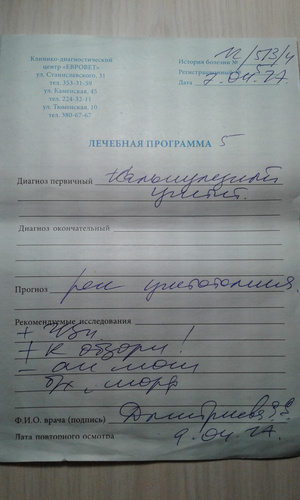 Клинико-диагностический
центр «ЕВРОВЕТ»
ул. Станиславского, 31
тел. 353-31-59
ул. Каменская, 45
тел. 224-32-11
ул. Тюменская, 10
тел. 380-67-67
История болезни № 12/513/4
Регистрационный №
Дата 7.04.17
ЛЕЧЕБНАЯ ПРОГРАММА 5
Диагноз первичный
цистит.
Диагноз окончательный
Прогноз рек цистотомия
Рекомендуемые исследования
+ Узи
+ к обзорн!
- ан мочи
б/х, морф
Ф.И.О. врача (подпись) Дмитриева
Дата повторного осмотра 9.04.17.